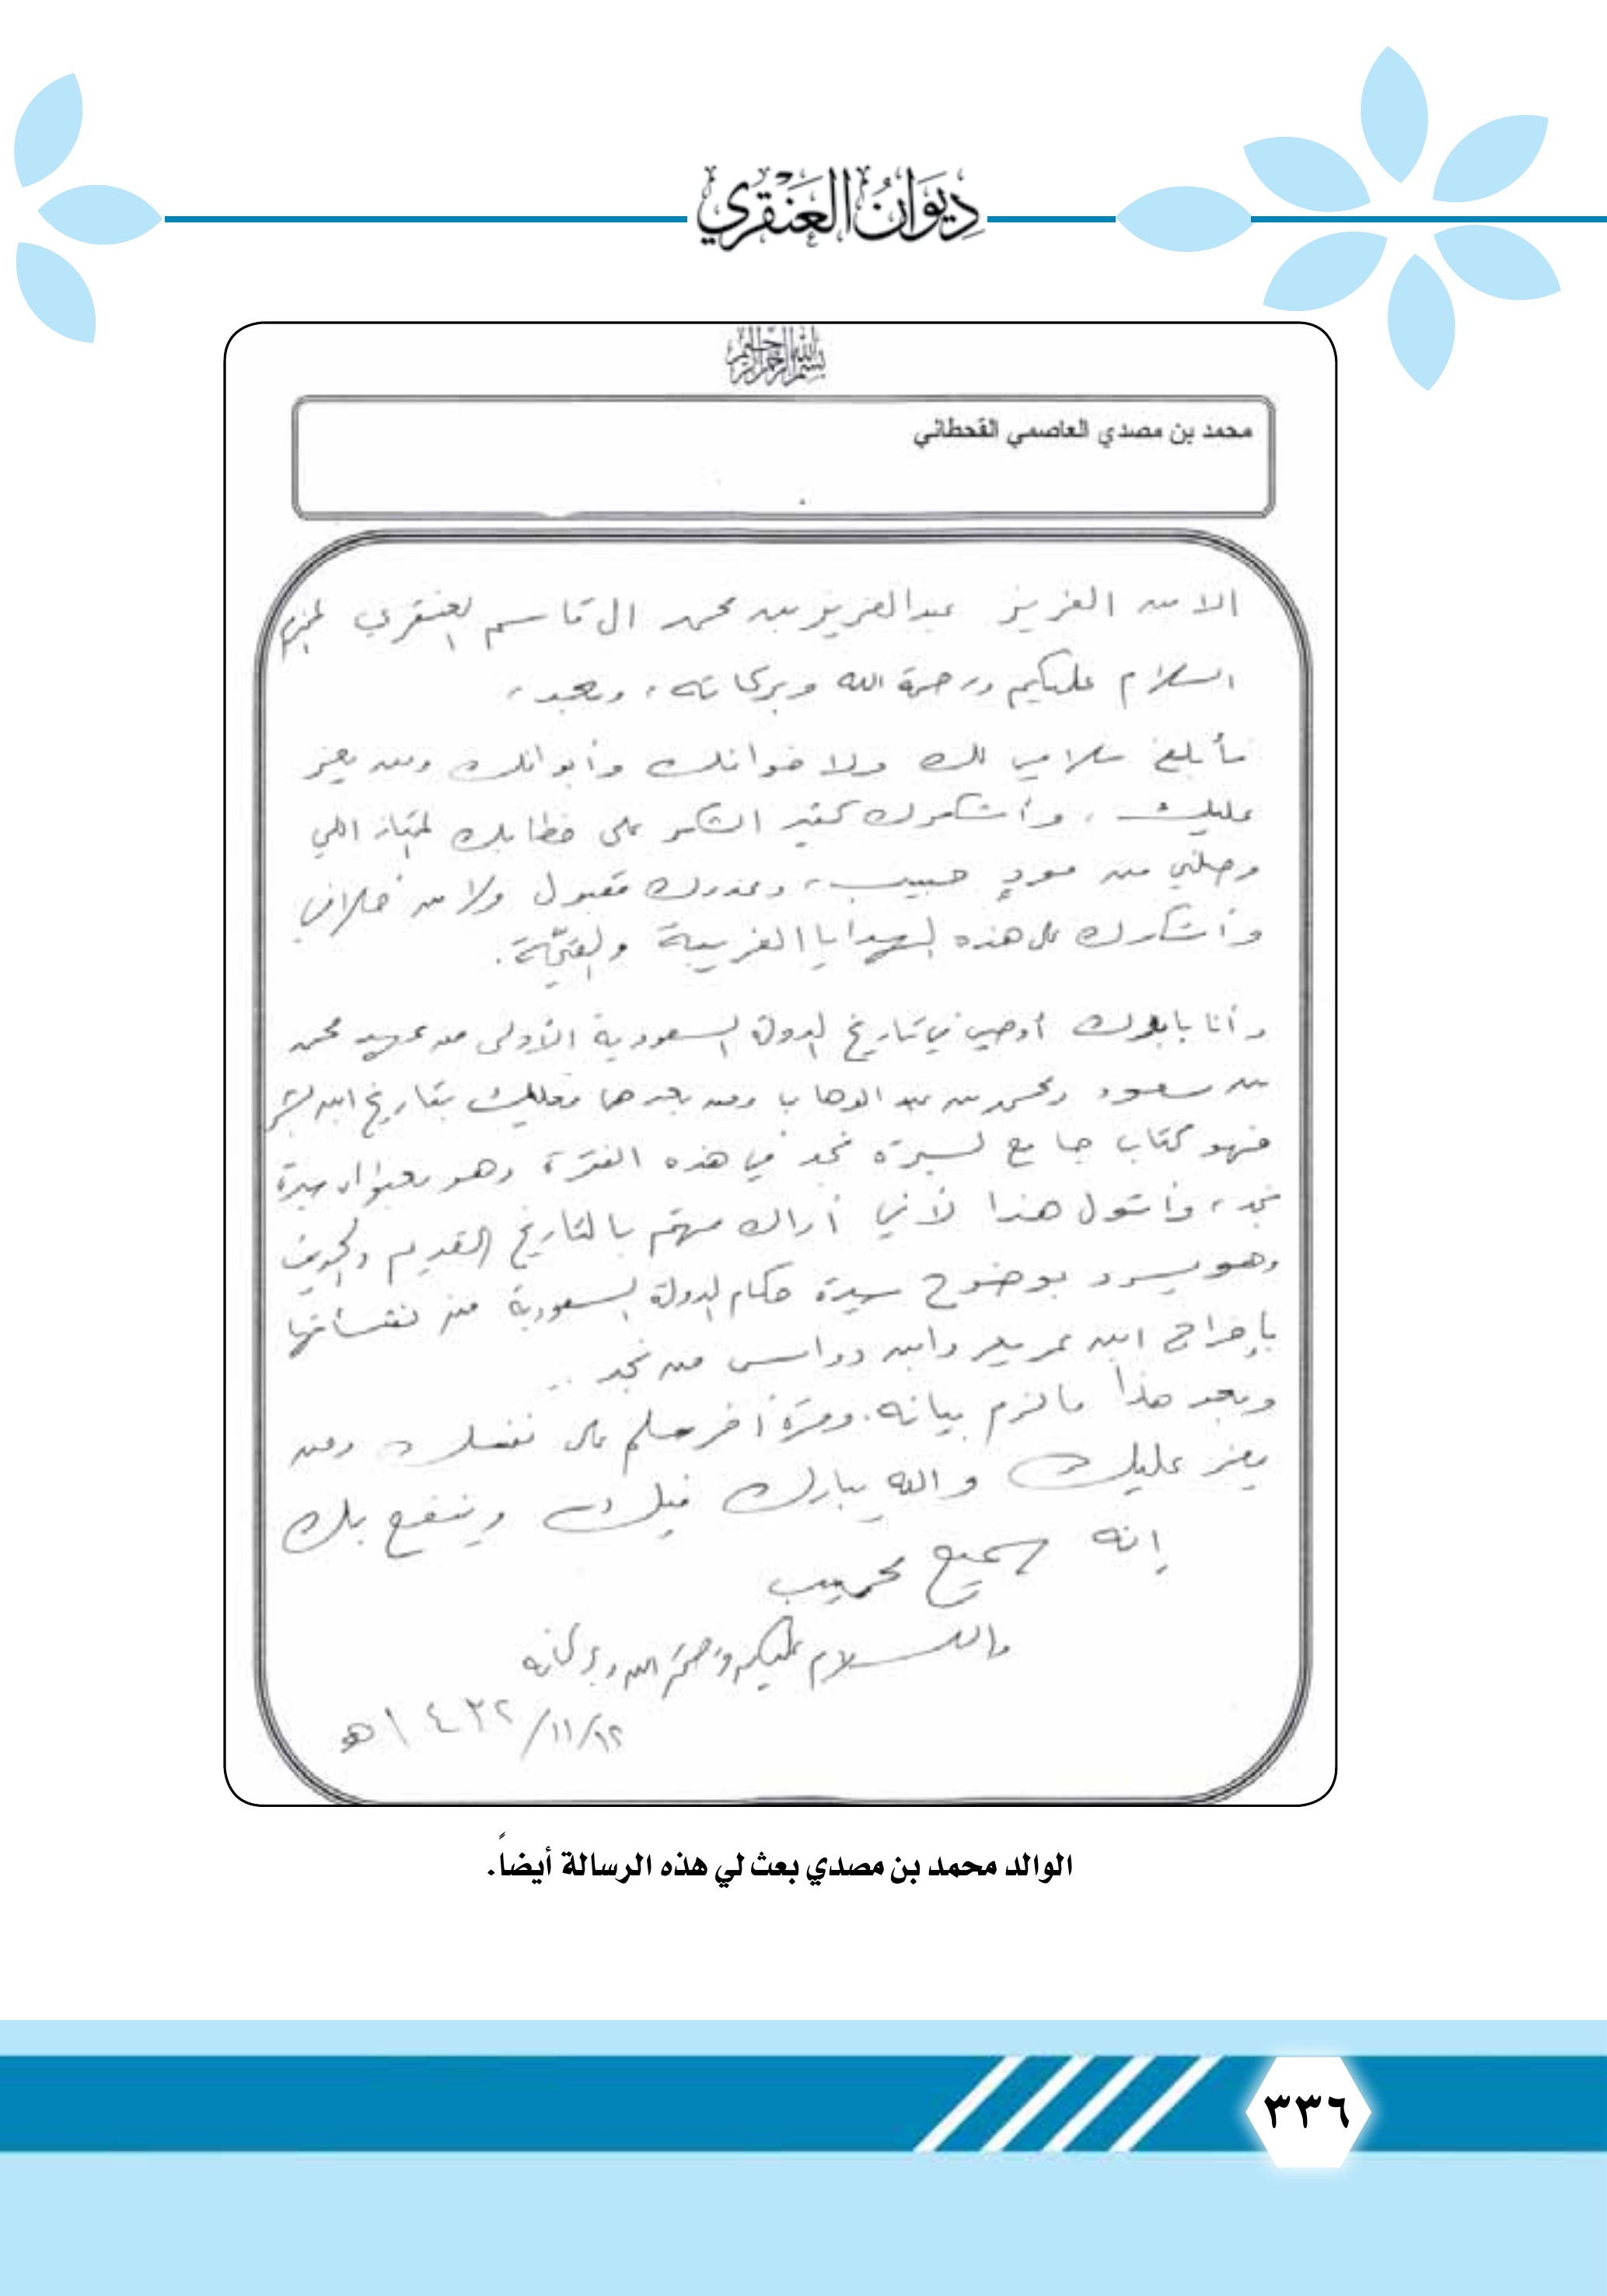 ديوان العنقري
بسم الله الرحمن الرحيم
محمد بن مصدي العاصمي القحطاني
الابن العزيز عبدالعزيز بن محمد ال قاسم العنقري
السلام عليكم ورحمة الله وبركاته، وبعد،
سأبلغ سلامي لك ولاخوانك وأبوانك ومن يعز
عليك، وأشكرك كثير الشكر على خطابك الممتاز اللي
وصلني من مودٍ حبيب، وعذرك مقبول ولا من خلاف
وأشكرك على هذه الهدايا الغريبة والقيّمة.
وأنا بابوك أوصي في تاريخ الدولة السعودية الأولى من عهد محمد
بن سعود ومحمد بن عبد الوهاب ومن بعدها فعليك بتاريخ ابن بشر
فهو كتاب جامع لسيرة نجد في هذه الفترة وهو بعنوان سيرة
نجد، وأقول هذا لأني أراك مهتم بالتاريخ القديم والحديث
وهو يسرد بوضوح سيرة حكام الدولة السعودية منذ نشأتها
بإخراج ابن عريعر وابن دواس من نجد ..
وبعد هذا مالزم بيانه. ومرة أخر سلم على نفسك ومن
يعز عليك والله يبارك فيك وينفع بك
إنه سميع مجيب
والسلام عليكم ورحمة الله وبركاته
١٢/١١/١٤٣٢هـ
الوالد محمد بن مصدي بعث لي هذه الرسالة أيضاً.
٣٣٦